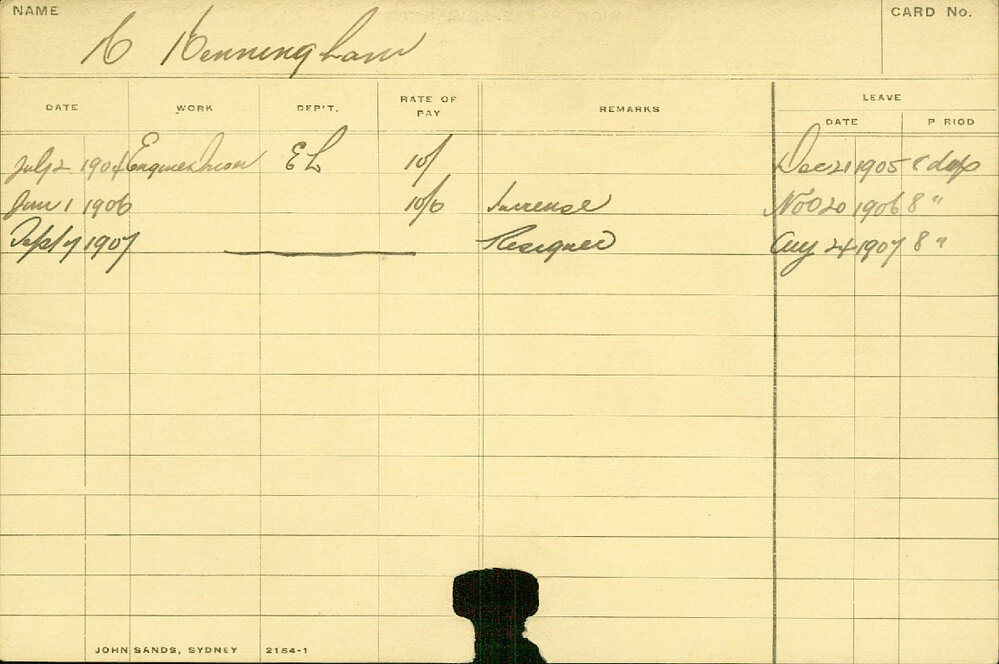 NAME
CARD No.
Henningham
DATE WORK DEP'T. RATE OF PAY REMARKS LEAVE
DATE P RIOD
July 2 1904 Engineman EL 10/ Dec 21 1905 days
Jun 1 1906 10/6 Increase Nov 20 1906 8 "
Sept 7 1907 Resigned Aug 24 1907 8 "
JOHN SANDS, SYDNEY 2154-1